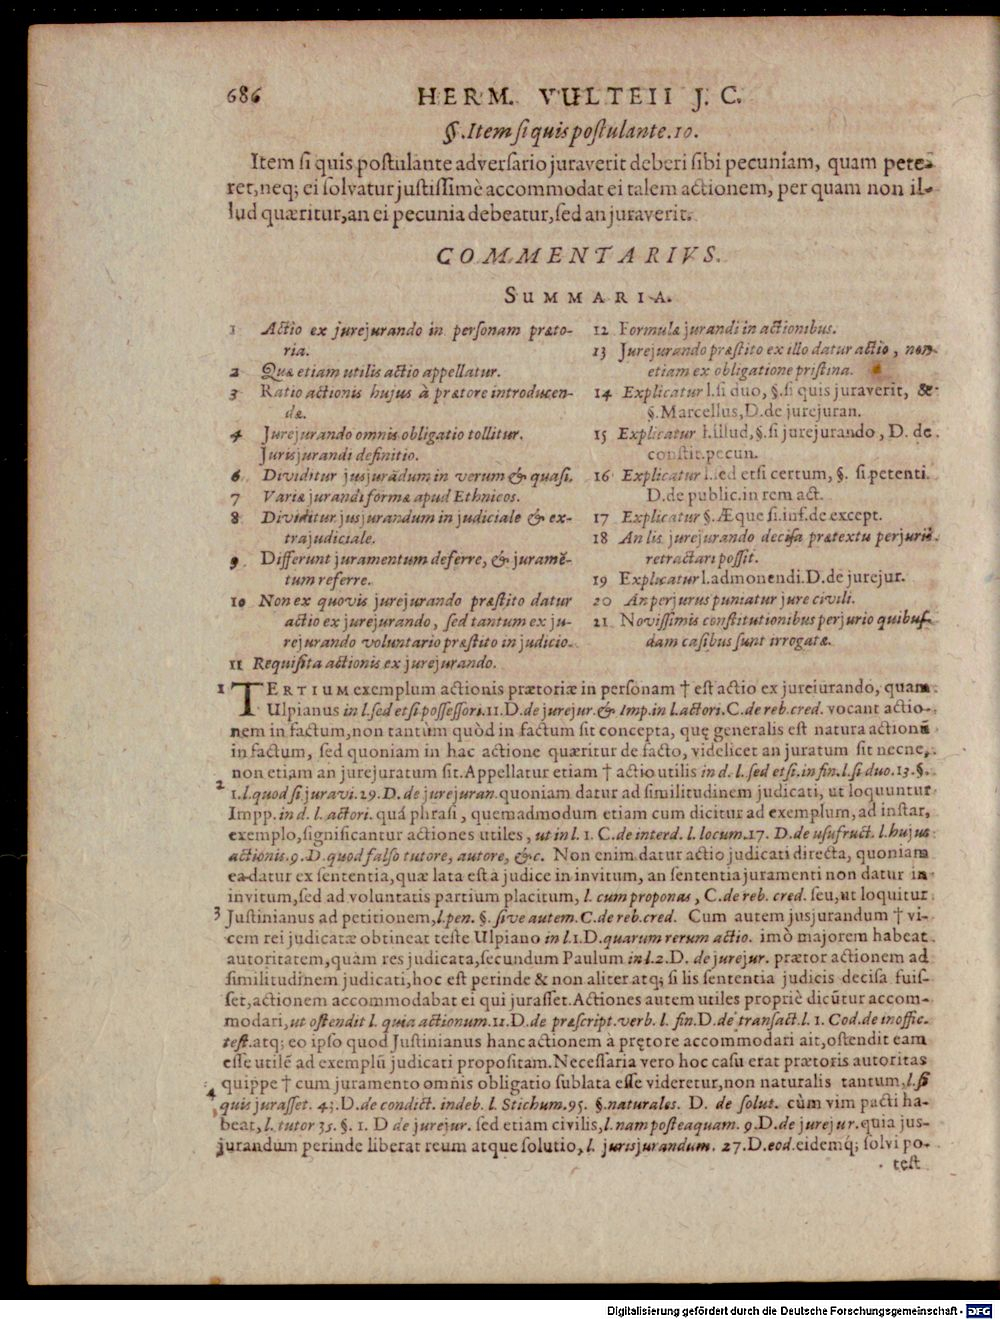 686 HERM. VULTEII J. C.
§. Item si quis postulante. 10.
Item si quis postulante adversario juraverit deberi sibi pecuniam, quam pete-
ret, neq; ei solvatur justissimè accommodat ei talem actionem, per quam non il-
lud quæritur, an ei pecunia debeatur, sed an juraverit.
COMMENTARIVS.
SUMMARIA.
1 Actio ex jurejurando in personam præto-
ria.
2 Quæ etiam utilis actio appellatur.
3 Ratio actionis hujus à prætore introducen-
dæ.
4 Jurejurando omnis obligatio tollitur.
Jurisjurandi definitio.
6 Dividitur jusjurādum in verum & quasi.
7 Variæ jurandi formæ apud Ethnicos.
8 Dividitur jusjurandum in judiciale & ex-
trajudiciale.
9 Differunt juramentum deferre, & juramē-
tum referre.
10 Non ex quovis jurejurando præstito datur
actio ex jurejurando, sed tantum ex ju-
rejurando voluntario præstito in judicio.
11 Requisita actionis ex jurejurando.
12 Formulæ jurandi in actionibus.
13 Jurejurando præstito ex illo datur actio, non
etiam ex obligatione pristina.
14 Explicatur l. si duo, §. si quis juraverit, &
§. Marcellus, D. de jurejuran.
15 Explicatur l. illud, §. si jurejurando, D. de
constit. pecun.
16 Explicatur l. sed etsi certum, §. si petenti.
D. de public. in rem act.
17 Explicatur §. Æque si. inf. de except.
18 An lis jurejurando decisa prætextu perjurii
retractari possit.
19 Explicatur l. admonendi. D. de jurejur.
20 An perjurus puniatur jure civili.
21 Novissimis constitutionibus perjurio quibus-
dam casibus sunt irrogatæ.
1 TERTIUM exemplum actionis prætoriæ in personam † est actio ex jureiurando, quam
Ulpianus in l. sed etsi possessori. 11. D. de jurejur. & Imp. in l. actori. C. de reb. cred. vocant actio-
nem in factum, non tantùm quòd in factum sit concepta, quę generalis est natura actionū
in factum, sed quoniam in hac actione quæritur de facto, videlicet an juratum sit necne,
non etiam an jurejuratum sit. Appellatur etiam † actio utilis in d. l. sed etsi. in fin. l. si duo. 13. §.
2 1. l. quod si juravi. 29. D. de jurejuran. quoniam datur ad similitudinem judicati, ut loquuntur
Impp. in d. l. actori. quâ phrasi, quemadmodum etiam cum dicitur ad exemplum, ad instar,
exemplo, significantur actiones utiles, ut in l. 1. C. de interd. l. locum. 17. D. de usufruct. l. hujus
actionis. 9. D. quod falso tutore, autore, &c. Non enim datur actio judicati directa, quoniam
ea datur ex sententia, quæ lata est à judice in invitum, an sententia juramenti non datur in
invitum, sed ad voluntatis partium placitum, l. cum proponas, C. de reb. cred. seu, ut loquitur
3 Justinianus ad petitionem, l. pen. §. sive autem. C. de reb. cred. Cum autem jusjurandum † vi-
cem rei judicatæ obtineat teste Ulpiano in l. 1. D. quarum rerum actio. imò majorem habeat
autoritatem, quàm res judicata, secundum Paulum in l. 2. D. de jurejur. prætor actionem ad
similitudinem judicati, hoc est perinde & non aliter atq; si lis sententia judicis decisa fuis-
set, actionem accommodabat ei qui jurasset. Actiones autem utiles propriè dicūtur accom-
modari, ut ostendit l. quia actionum. 11. D. de præscript. verb. l. fin. D. de transact. l. 1. Cod. de inoffic.
test. atq; eo ipso quod Justinianus hanc actionem à prętore accommodari ait, ostendit eam
esse utilē ad exemplū judicati propositam. Necessaria vero hoc casu erat prætoris autoritas
4 quippe † cum juramento omnis obligatio sublata esse videretur, non naturalis tantum, l. si
quis jurasset. 43. D. de condict. indeb. l. Stichum. 95. §. naturales. D. de solut. cùm vim pacti ha-
beat, l. tutor 35. §. 1. D de jurejur. sed etiam civilis, l. nam posteaquam. 9. D. de jurejur. quia jus-
jurandum perinde liberat reum atque solutio, l. jurisjurandum. 27. D. eod. eidemq; solvi po-
test
Digitalisierung gefördert durch die Deutsche Forschungsgemeinschaft - DFG